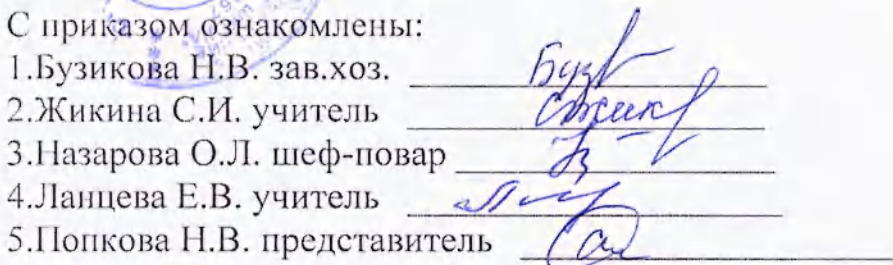 С приказом ознакомлены:
1.Бузикова Н.В. зав.хоз.
2.Жикина С.И. учитель
3.Назарова О.Л. шеф-повар
4.Ланцева Е.В. учитель
5.Попкова Н.В. представитель